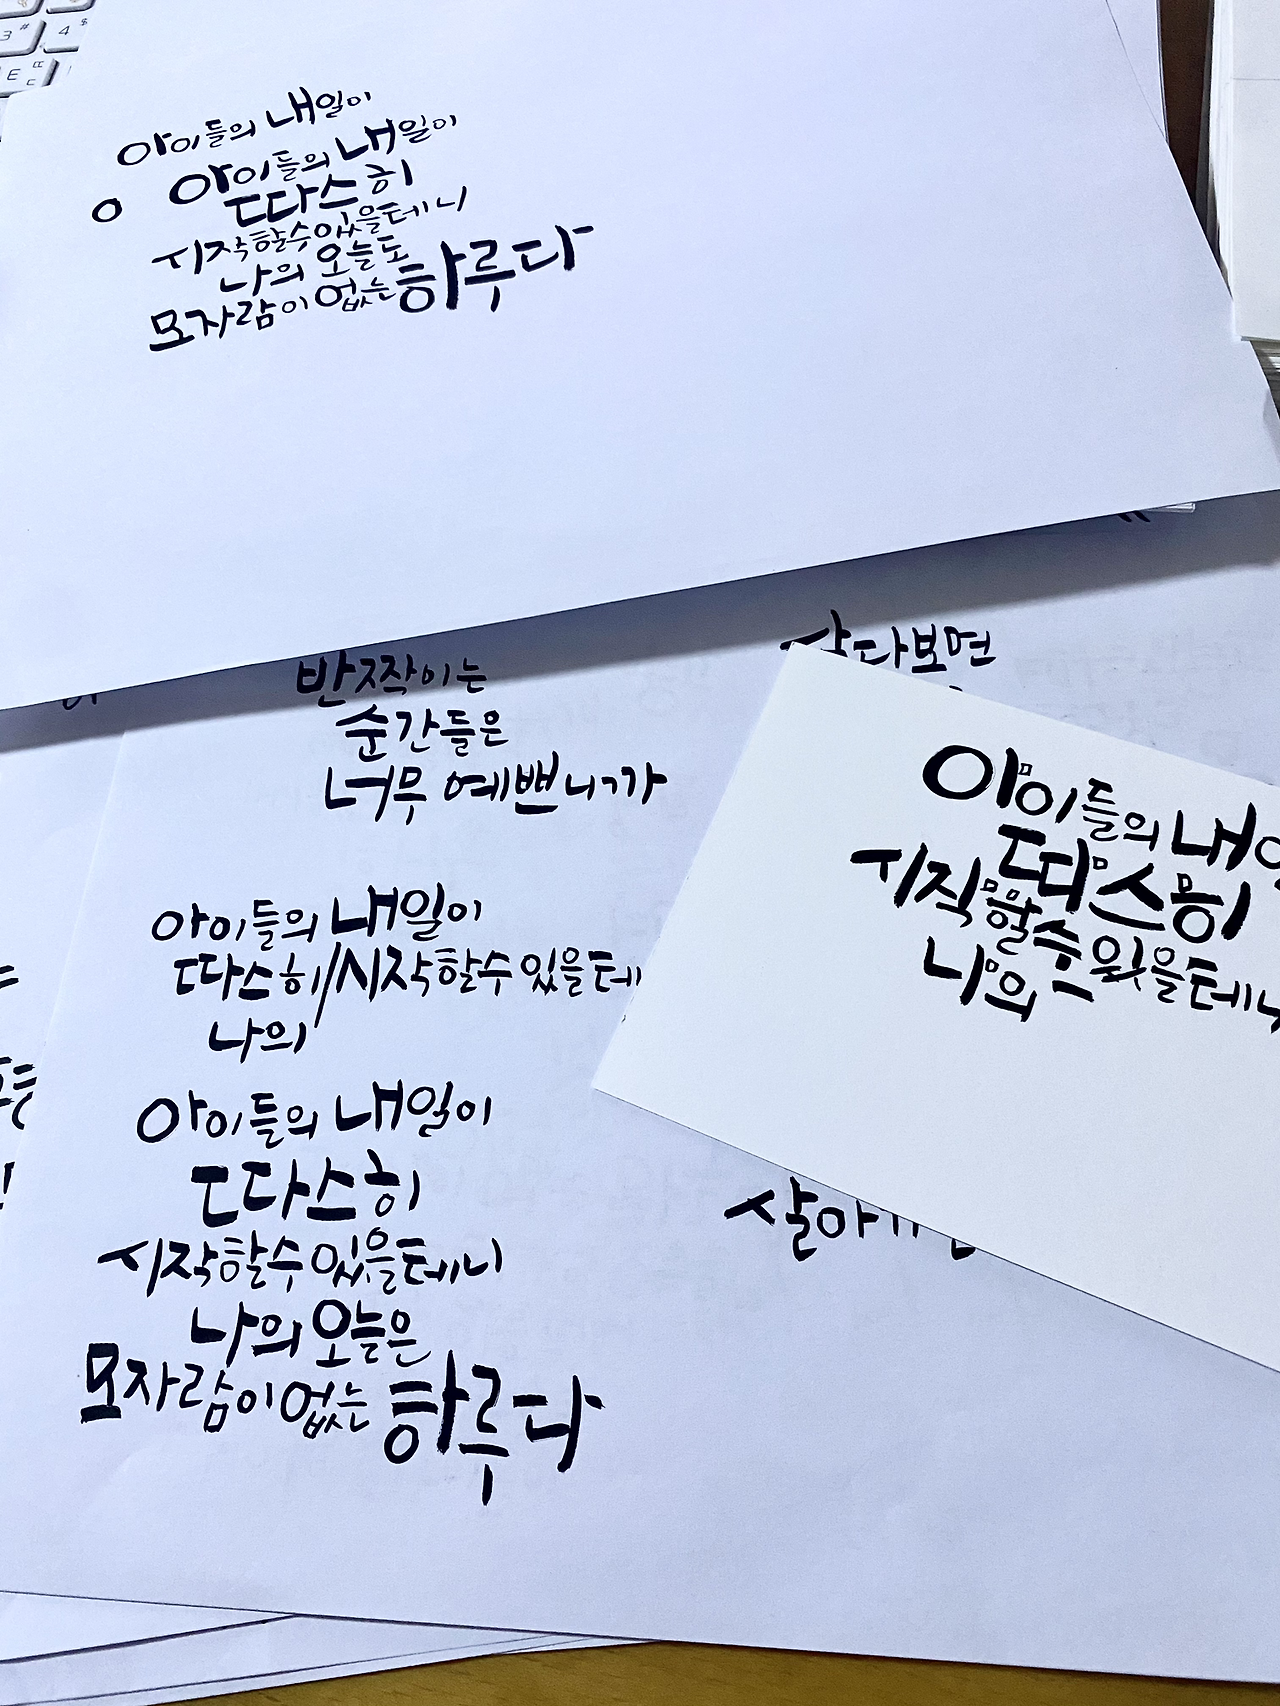 3 #
4 $
E ㄸ ㄷ
아이들의 내일이
ㅇ 아이들의 내일이
따스히
시작할수있을테니
나의 오늘도
모자람이 없는 하루다
반짝이는
순간들은
너무 예쁘니까
살다보면
아이들의 내일이
따스히/시작할수있을테
나의
아이들의 내일이
따스히
시작할수있을테니
나의 오늘은
모자람이없는 하루다
아이들의 내
따스히
시작할수있을테니
나의